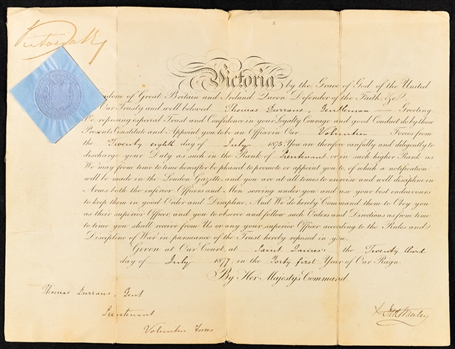 Victoria R
Victoria by the Grace of God of the United
Kingdom of Great Britain and Ireland, Queen, Defender of the Faith, &c.
To Our Trusty and well beloved Thomas Gentleman Greeting
We, reposing especial Trust and Confidence in your Loyalty, Courage, and good Conduct, do by these
Presents Constitute and Appoint you to be an Officer in Our Volunteer Forces from
the Twenty eighth day of July 1875. You are therefore carefully and diligently to
discharge your Duty as such in the Rank of Lieutenant or in such higher Rank as
We may from time to time hereafter be pleased to promote or appoint you to, of which a notification
will be made in the London Gazette, and you are at all times to exercise and well discipline in
Arms both the inferior Officers and Men serving under you and use your best endeavours
to keep them in good Order and Discipline. And We do hereby Command them to Obey you
as their superior Officer, and you to observe and follow such Orders and Directions as from time
to time you shall receive from Us or any your superior Officer according to the Rules and
Discipline of War in pursuance of the Trust hereby reposed in you.
Given at Our Court, at Saint James's the Twenty third
day of July 1877, in the Forty first Year of Our Reign
By Her Majesty's Command
Thomas Gent
Lieutenant
Volunteer Forces